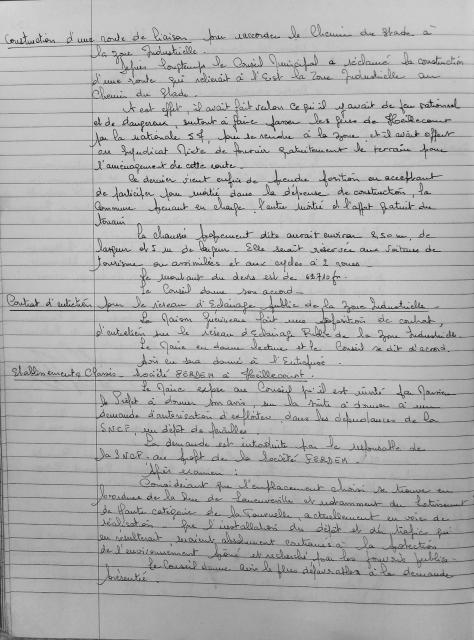 Construction d'une route de liaison pour raccorder le Chemin du Stade à
la Zone Industrielle.
Depuis longtemps le Conseil Municipal a réclamé la construction
d'une route qui relierait à l'Est la Zone Industrielle au
Chemin du Stade.
A cet effet, il avait fait valoir ce qu'il y avait de peu rationnel
et de dangereux surtout à faire passer les gens de Heillecourt
par la nationale 57, pour se rendre à la Zone et il avait offert
au Syndicat Mixte de fournir gratuitement le terrain pour
l'aménagement de cette route.
Ce dernier vient enfin de prendre position en acceptant
de participer pour moitié dans la dépense de construction, la
Commune prenant en charge l'autre moitié et l'apport gratuit du
terrain.
La chaussée proprement dite aurait environ 250 m, de
longueur et 5 m de largeur. Elle serait réservée aux voitures de
tourisme ou assimilées et aux cycles à 2 roues.
Le montant du devis est de
Le Conseil donne son accord.
Contrat d'entretien pour le réseau d'Eclairage public de la Zone Industrielle
La Maison fait une proposition de contrat,
d'entretien sur le réseau d'Eclairage Public de la Zone Industrielle
Le Maire en donne lecture et le Conseil se dit d'accord.
Avis en sera donné à
Etablissements Classés. Société FERDEM à Heillecourt.
Le Maire expose au Conseil qu'il est invité par Monsieur
le Préfet à donner son avis, sur la suite à donner à une
demande d'autorisation d'exploiter, dans les dépendances de la
SNCF, un dépôt de ferrailles
La demande est introduite par le responsable de
la SNCF. au profit de la Société FERDEM.
Après examen :
Considérant que l'emplacement choisi se trouve en
bordure de la Rue de et notamment du lotissement
de haute catégorie de la actuellement en voie de
réalisation. Que l'installation du dépôt et du trafic qui
en résulterait, seraient absolument contraires à la protection
de l'environnement prôné et recherché par les pouvoirs publics.
Le Conseil donne avis le plus défavorable à la demande
présentée.